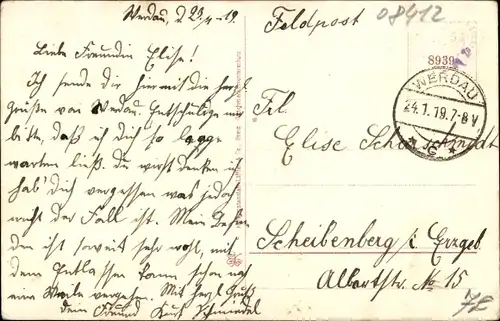 Werdau, d 23/1 - 19.
Liebe Freundin Elise!
Ich sende dir hiermit die herzl.
Grüße von Werdau. Entschuldige nur
bitte, daß ich dich so lange
warten ließ. Du wirst denken ich
hab dich vergessen was jedoch
nicht der Fall ist. Mein Befin
den ist soweit sehr wohl, mit
dem Entlassen kann schon noch
eine Weile vergehen. Mit herzl. Gruß
dein Freund Kurt Schmiedel
Feldpost
08412
8939
WERDAU
24.1.19.7-8V
* c *
Frl.
Elise Schmidt
Scheibenberg i. Erzgeb
Albertstr. No 15